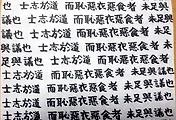 士志於道 而恥惡衣惡食者 未足與
議也 士志於道 而恥惡衣惡食者 未足與
議也 士志於道 而恥惡衣惡食者 未
足與議也 士志於道 而恥惡衣惡食者
士志於道 而恥惡衣惡食者 未足與議也
士志於道 而恥惡衣惡食者 未足與
議也 士志於道 而恥惡衣惡食者